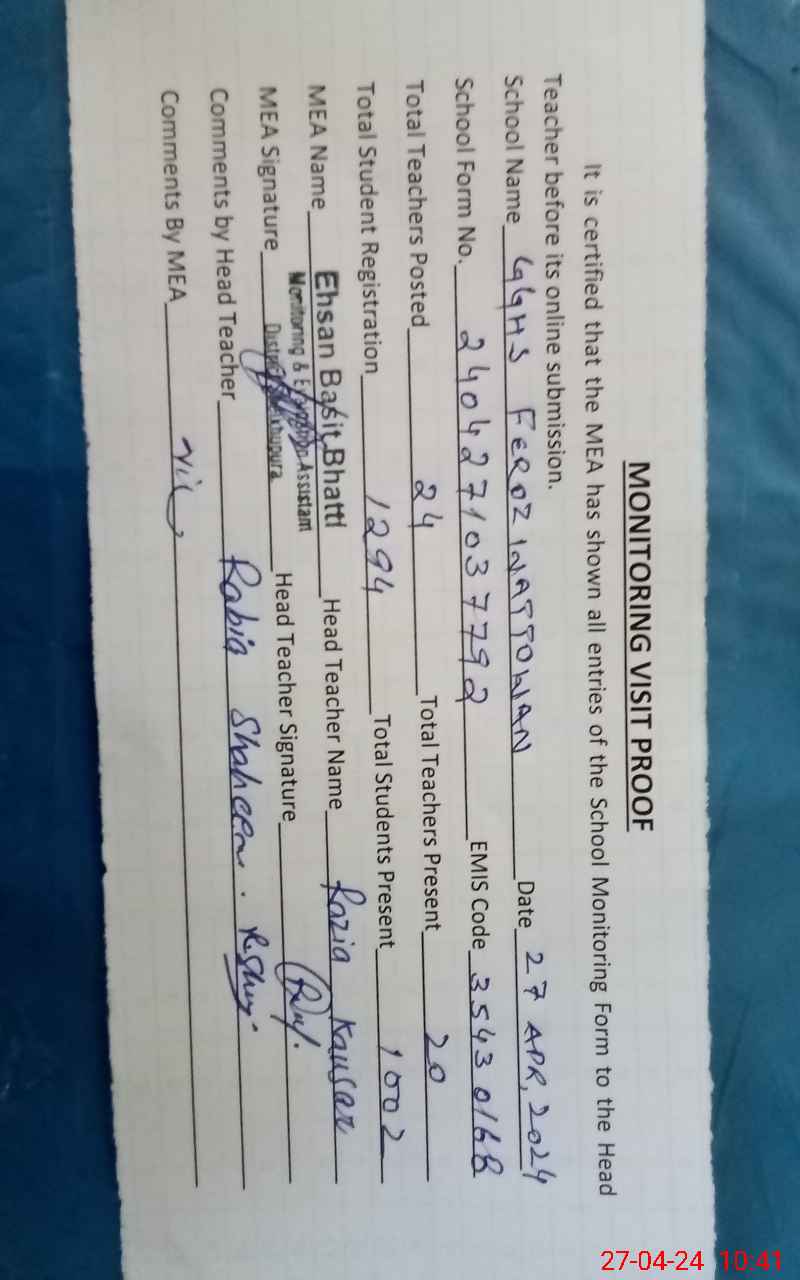 MONITORING VISIT PROOF
It is certified that the MEA has shown all entries of the School Monitoring Form to the Head
Teacher before its online submission.
School Name GGHS FEROZ WATTOWAN Date 27 APR, 2024
School Form No. 2404271037792 EMIS Code 35430168
Total Teachers Posted 24 Total Teachers Present 20
Total Student Registration 1294 Total Students Present 1002
MEA Name Ehsan Basit Bhatti Head Teacher Name Razia Kausar
Monitoring & Evaluation Assistant
MEA Signature District Sheikhupura Head Teacher Signature
Comments by Head Teacher Rabia Shaheen.
Comments By MEA Nil
27-04-24 10:41